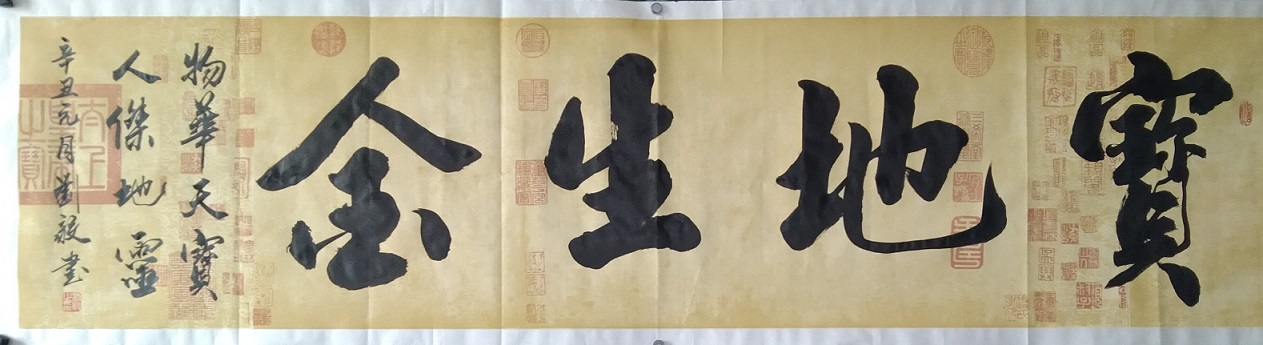 寶地生金
物華天寶
人傑地靈
辛丑元月劉毅書